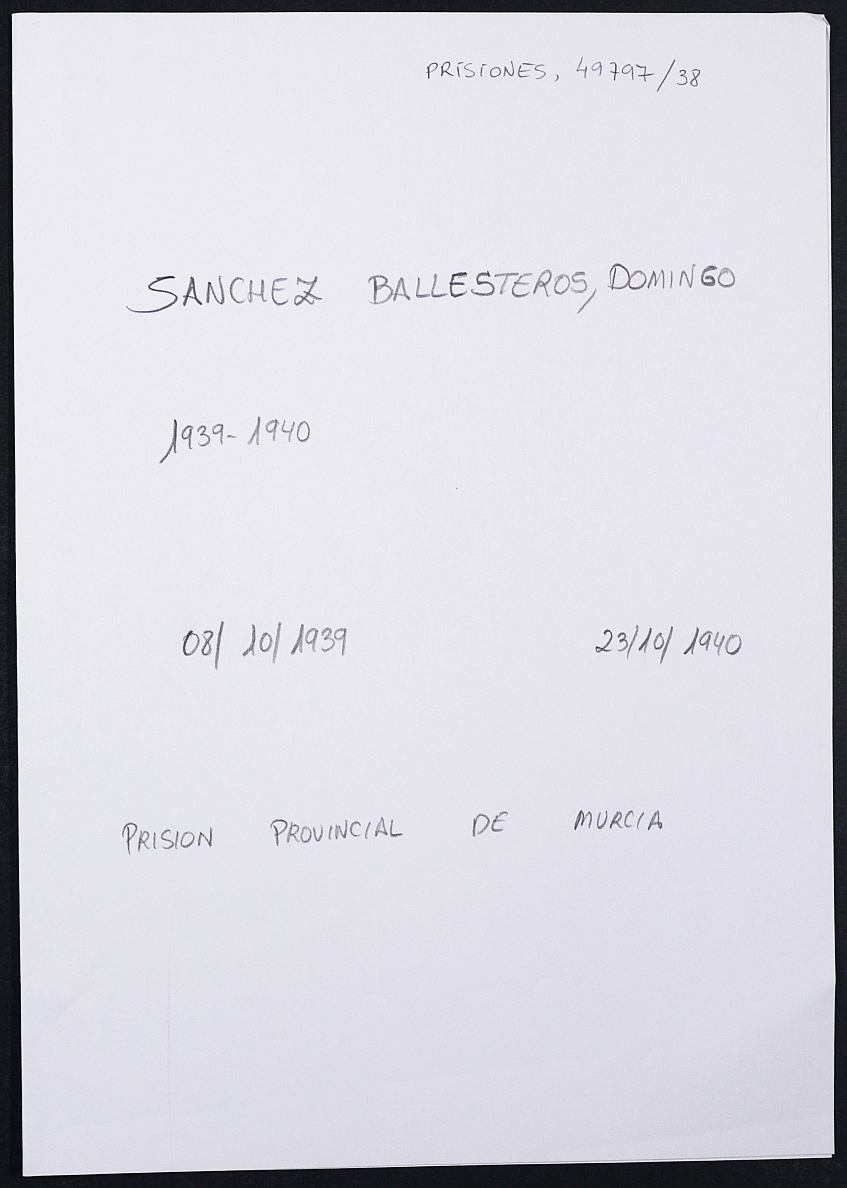 PRISIONES, 49797/38
SANCHEZ BALLESTEROS, DOMINGO
1939-1940
08/10/1939 23/10/1940
PRISION PROVINCIAL DE MURCIA